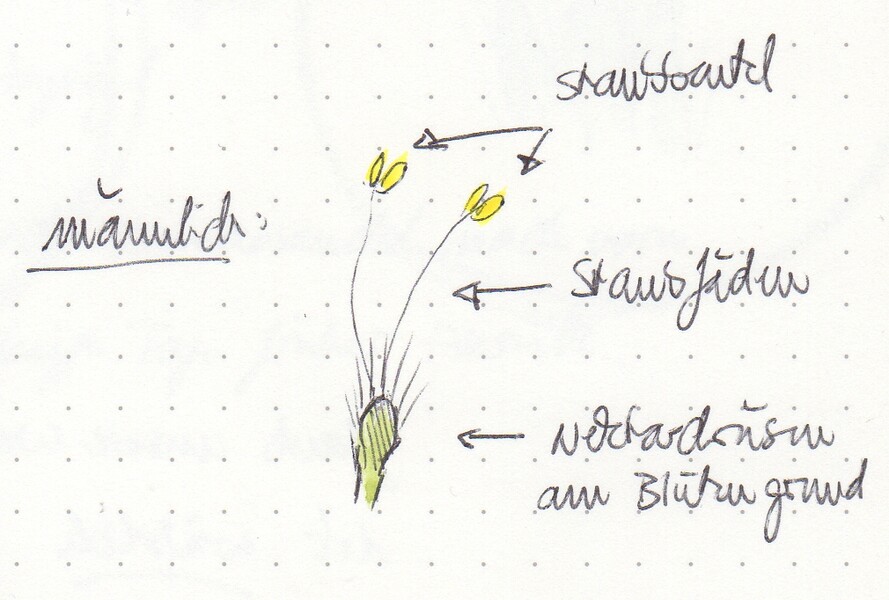 Staubbeutel
männlich:
Staubfäden
Nektardrüsen
am Blütengrund